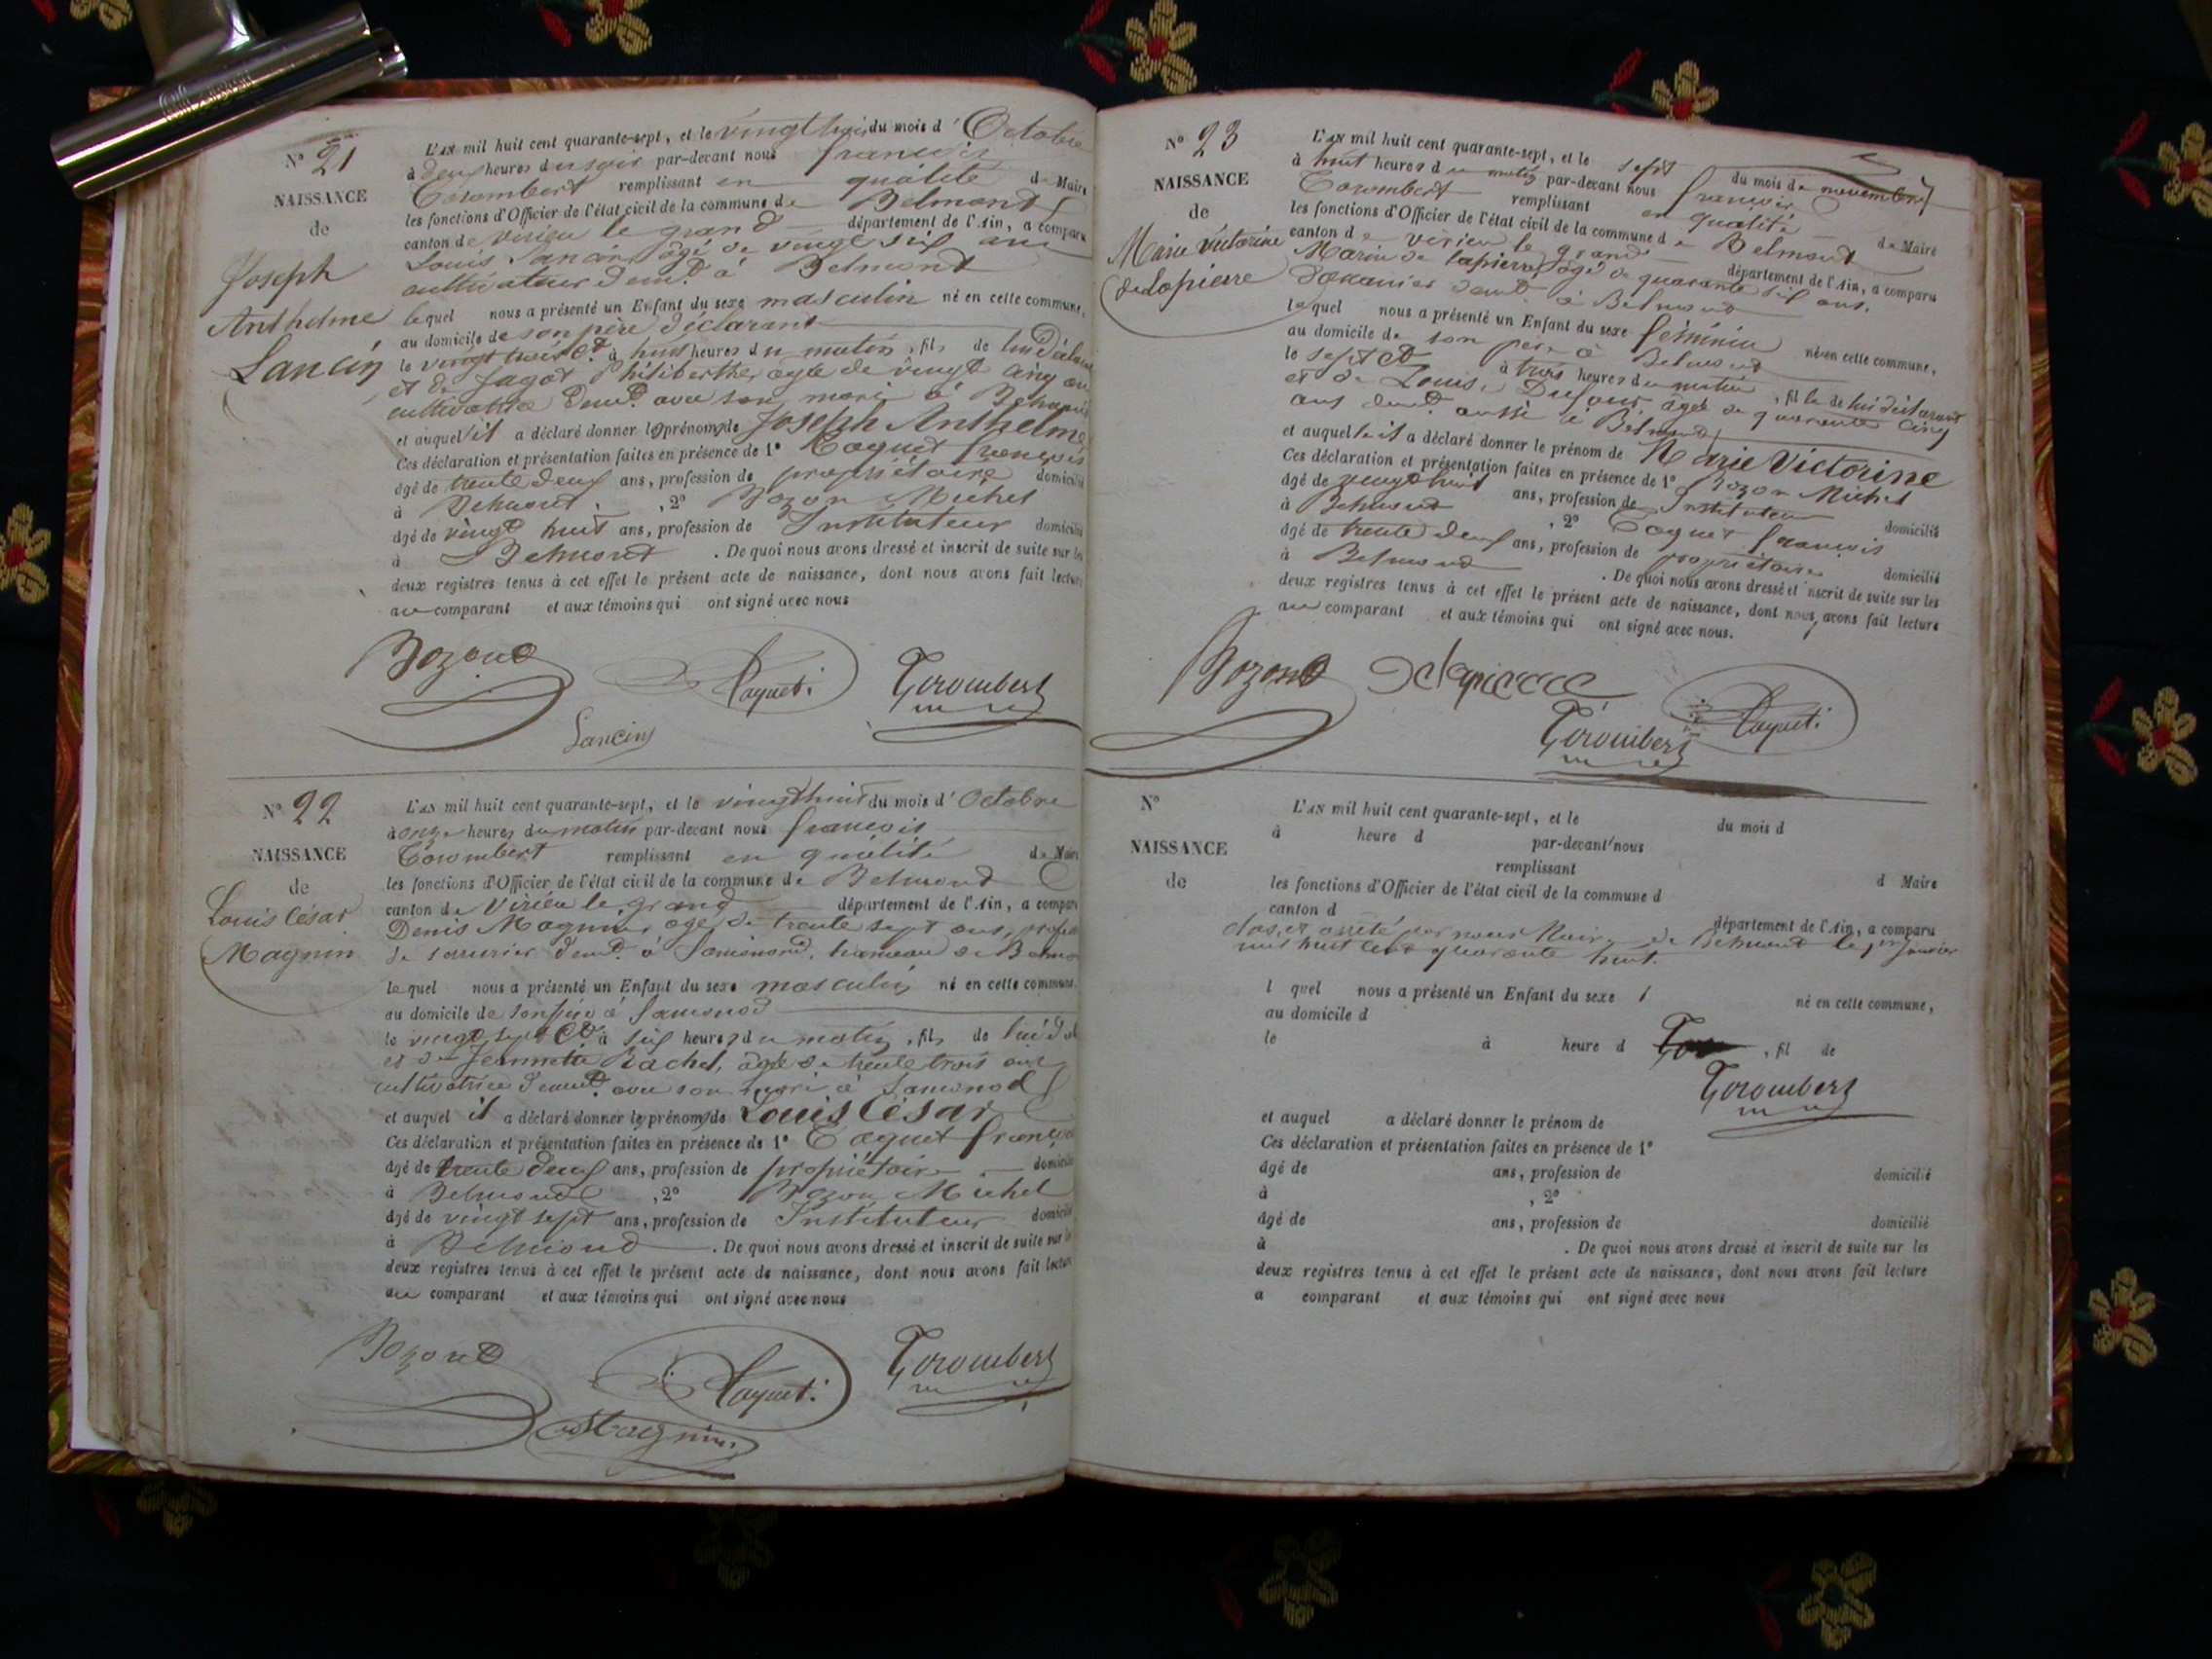 N° 21
NAISSANCE
de
Joseph
Anthelme
Lancin
L'AN mil huit cent quarante-sept, et le vingt trois du mois d' Octobre
à deux heures du soir par-devant nous françois
Corombert remplissant en qualité de Maire
les fonctions d'Officier de l'état civil de la commune de Belmont
canton de virieu le grand département de l'Ain, a comparu
Louis Lancin âgé de vingt six ans
cultivateur demt. à Belmont
lequel nous a présenté un Enfant du sexe masculin né en cette commune,
au domicile de son père déclarant
le vingt trois ct. à huit heures du matin, fils de lui déclarant
et de Jagot Philiberthe, agée de vingt cinq ans
cultivatrice demt. avec son mari à Belmont
et auquel il a déclaré donner les prénoms de Joseph Anthelme
Ces déclaration et présentation faites en présence de 1° Coquet françois
âgé de trente deux ans, profession de propriétaire domicilié
à Belmont , 2° Bozon Michel
âgé de vingt huit ans, profession de Instituteur domicilié
à Belmont . De quoi nous avons dressé et inscrit de suite sur les
deux registres tenus à cet effet le présent acte de naissance, dont nous avons fait lecture
au comparant et aux témoins qui ont signé avec nous
Bozond
Coquet
Corombert
Lancin
N° 22
NAISSANCE
de
Louis César
Magnin
L'AN mil huit cent quarante-sept, et le vingt huit du mois d' Octobre
à onze heures du matin par-devant nous françois
Corombert remplissant en qualité de Maire
les fonctions d'Officier de l'état civil de la commune de Belmond
canton de Virieu le grand département de l'Ain, a comparu
Denis Magnin, agé de trente sept ans,
de serrurier demt. à Samonod, hameau de
lequel nous a présenté un Enfant du sexe masculin né en cette commune
au domicile de son père à Samonod
le vingt sept ct. à six heures du matin, fils de lui
et de Jeannette Rachel, âgée de trente trois ans
cultivatrice demt. avec son mari à Samonod
et auquel il a déclaré donner les prénoms de Louis César
Ces déclaration et présentation faites en présence de 1° Coquet françois
âgé de trente deux ans, profession de propriétaire domicilié
à Belmond , 2° Bozon Michel
âgé de vingt sept ans, profession de Instituteur domicilié
à Belmond . De quoi nous avons dressé et inscrit de suite sur les
deux registres tenus à cet effet le présent acte de naissance, dont nous avons fait lecture
au comparant et aux témoins qui ont signé avec nous
Bozond
Coquet
Corombert
Magnin
N° 23
NAISSANCE
de
Marie Victorine
delapierre
L'AN mil huit cent quarante-sept, et le sept du mois de novembre
à huit heures du matin par-devant nous françois
Corombert remplissant en qualité de Maire
les fonctions d'Officier de l'état civil de la commune de Belmont
canton de virieu le grand département de l'Ain, a comparu
Marin de lapierre, âgé de quarante six ans,
douanier demt. à Belmond
lequel nous a présenté un Enfant du sexe féminin né en cette commune,
au domicile de son père à Belmond
le sept ct. à trois heures du matin, fille de lui déclarant
et de Louise Dufour âgée de quarante cinq
ans demt. aussi à Belmond
et auquel le il a déclaré donner le prénom de Marie Victorine
Ces déclaration et présentation faites en présence de 1° Bozon Michel
âgé de vingt huit ans, profession de Instituteur domicilié
à Belmond , 2° Coquet françois
âgé de trente deux ans, profession de propriétaire domicilié
à Belmond . De quoi nous avons dressé et inscrit de suite sur les
deux registres tenus à cet effet le présent acte de naissance, dont nous avons fait lecture
au comparant et aux témoins qui ont signé avec nous.
Bozond
Delapierre
Corombert
Coquet
N°
NAISSANCE
de
L'AN mil huit cent quarante-sept, et le du mois d
à heure d par-devant nous
remplissant d Maire
les fonctions d'Officier de l'état civil de la commune d
canton d département de l'Ain, a comparu
clos et arrêté par nous Maire de Belmond le 1er janvier
mil huit cent quarante huit.
l quel nous a présenté un Enfant du sexe né en cette commune,
au domicile d
le à heure d , fil de
Corombert
et auquel a déclaré donner le prénom de
Ces déclaration et présentation faites en présence de 1°
âgé de ans, profession de domicilié
à , 2°
âgé de ans, profession de domicilié
à . De quoi nous avons dressé et inscrit de suite sur les
deux registres tenus à cet effet le présent acte de naissance, dont nous avons fait lecture
a comparant et aux témoins qui ont signé avec nous